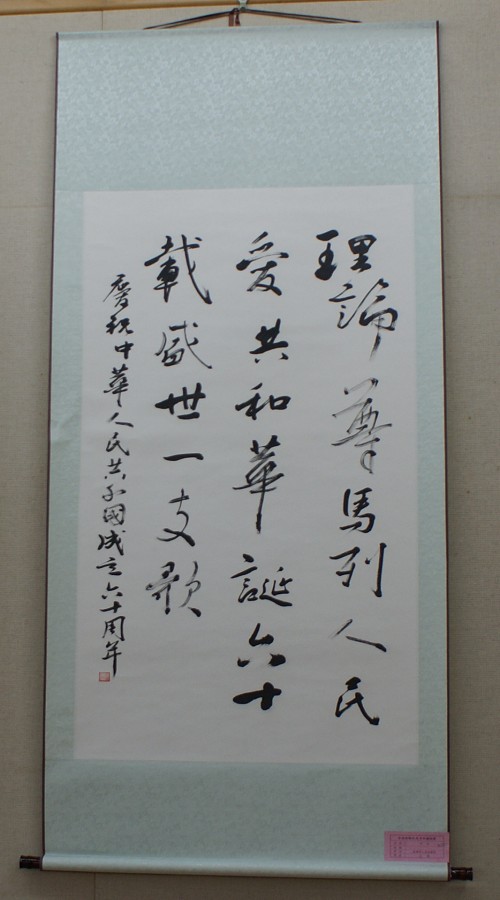 理論尊馬列人民
愛共和華誕六十
載盛世一支歌
慶祝中華人民共和國成立六十周年